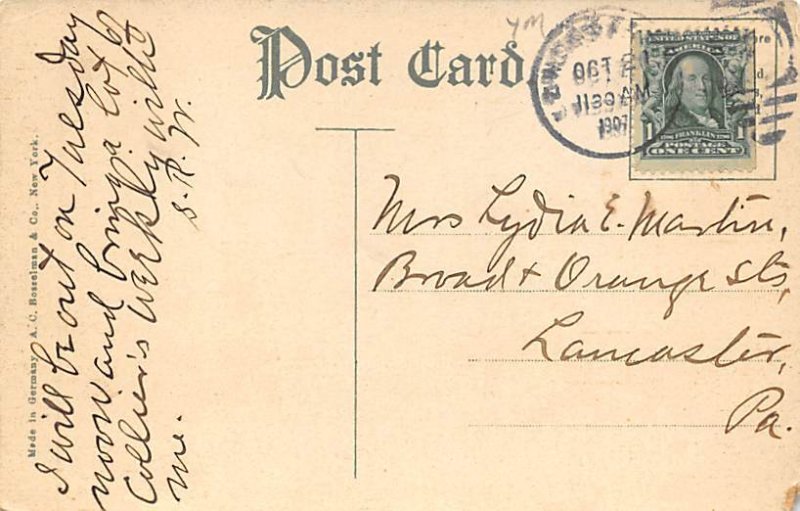 Post Card
YM
OCT 21
1130 AM
1907
UNITED STATES OF
AMERICA
1 FRANKLIN 1
POSTAGE
ONE CENT
Mrs Lydia E. Martin,
Broad + Orange Sts,
Lancaster,
Pa.
I will be out on Tuesday
noon and bring a lot of
Collier's Weekly with
me. S. R. W.
Made in Germany, A. C. Bosselman & Co., New York.